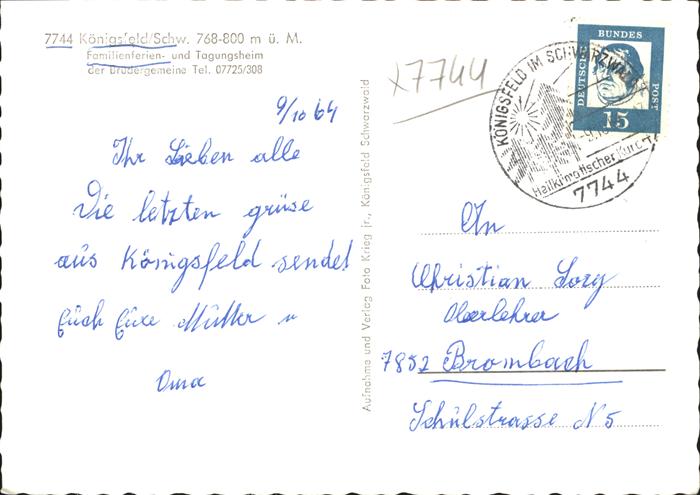 7744 Königsfeld/Schw. 768-800 m ü. M.
Familienferien- und Tagungsheim
der Brüdergemeine Tel. 07725/308
9/10 64
Ihr Lieben alle
Die letzten grüse
aus Königsfeld sendet
Euch Eure Mutter u
Oma
Aufnahme und Verlag Foto Krieg jr., Königsfeld Schwarzwald
x7744
KÖNIGSFELD IM SCHWARZWALD
Heilklimatischer Kurort
7744
DEUTSCHE
BUNDES
POST
15
An
Christian Sorg
Oberlehrer
7852 Brombach
Schülstrasse N 5